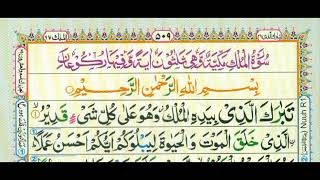 ٥٠٩
سُوْرَةُ الْمُلْكِ مَكِّيَّةٌ وَّهِيَ ثَلٰثُوْنَ اٰيَةً وَّفِيْهَا رُكُوْعَانِ
بِسْمِ اللّٰهِ الرَّحْمٰنِ الرَّحِيْمِ
تَبٰرَكَ الَّذِيْ بِيَدِهِ الْمُلْكُ وَهُوَ عَلٰى كُلِّ شَيْءٍ قَدِيْرُۨ ۝١
الَّذِيْ خَلَقَ الْمَوْتَ وَالْحَيٰوةَ لِيَبْلُوَكُمْ اَيُّكُمْ اَحْسَنُ عَمَلًا